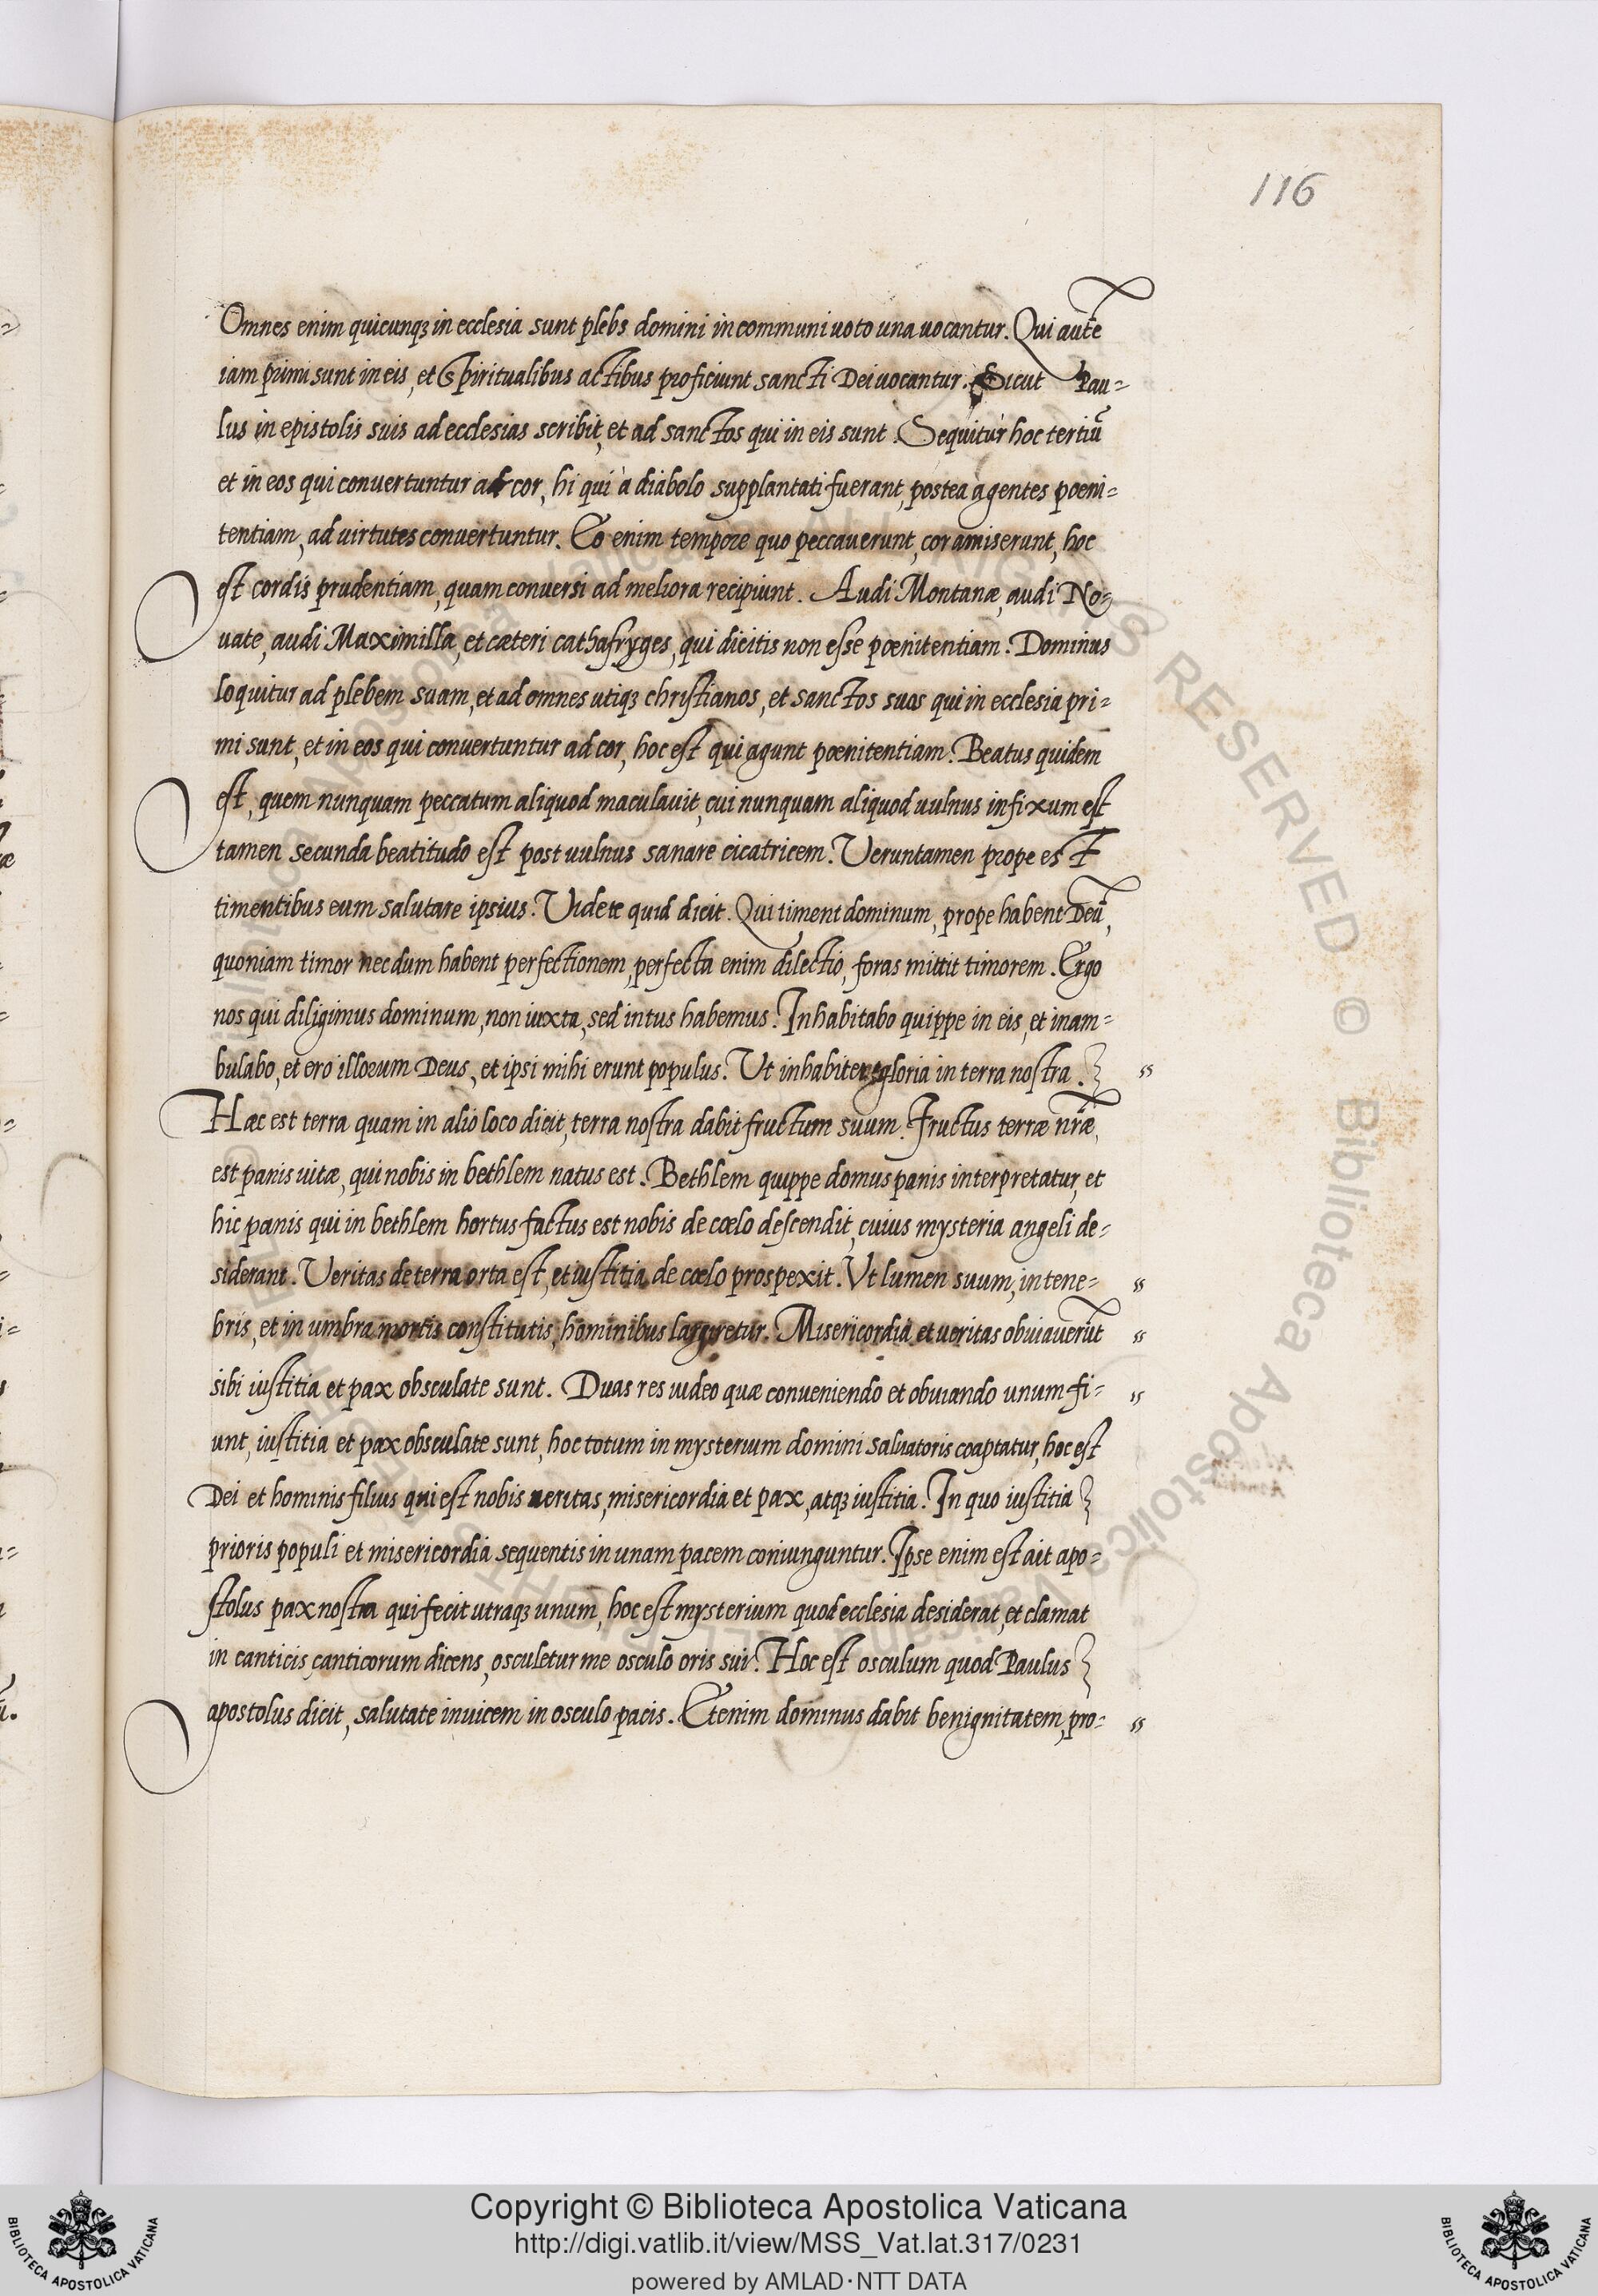 116
Omnes enim quicunqꝫ in ecclesia sunt plebs domini in communi uoto una uocantur. Qui autē
iam primi sunt in eis, et Spiritualibus actibus proficiunt sancti Dei uocantur. Sicut Pau=
lus in epistolis suis ad ecclesias scribit, et ad sanctos qui in eis sunt. Sequitur hoc tertiū
et in eos qui conuertuntur ad cor, hi qui à diabolo supplantati fuerant, postea agentes poeni=
tentiam, ad uirtutes conuertuntur. Eo enim tempore quo peccauerunt, cor amiserunt, hoc
est cordis prudentiam, quam conuersi ad meliora recipiunt. Audi Montanæ, audi No=
uate, audi Maximilla, et cæteri cathafryges, qui dicitis non esse pœnitentiam. Dominus
loquitur ad plebem suam, et ad omnes utiqꝫ christianos, et sanctos suos qui in ecclesia pri=
mi sunt, et in eos qui conuertuntur ad cor, hoc est qui agunt pœnitentiam. Beatus quidem
est, quem nunquam peccatum aliquod maculauit, cui nunquam aliquod uulnus infixum est
tamen secunda beatitudo est post uulnus sanare cicatricem. Ueruntamen prope est
timentibus eum salutare ipsius. Uidete quid dicit. Qui timent dominum, prope habent Deū,
quoniam timor necdum habent perfectionem, perfecta enim dilectio, foras mittit timorem. Ergo
nos qui diligimus dominum, non iuxta, sed intus habemus. Inhabitabo quippe in eis, et inam=
bulabo, et ero illorum Deus, et ipsi mihi erunt populus. Ut inhabitet gloria in terra nostra. "
Hæc est terra quam in alio loco dicit, terra nostra dabit fructum suum. Fructus terræ nr̃æ,
est panis uitæ, qui nobis in bethlem natus est. Bethlem quippe domus panis interpretatur, et
hic panis qui in bethlem hortus factus est nobis de cœlo descendit, cuius mysteria angeli de=
siderant. Ueritas de terra orta est, et iustitia de cœlo prospexit. Vt lumen suum, in tene= "
bris, et in umbra mortis constitutis, hominibus largiretur. Misericordia et ueritas obuiauerūt "
sibi iustitia et pax obsculate sunt. Duas res uideo quæ conueniendo et obuiando unum fi= "
unt, iustitia et pax obsculate sunt, hoc totum in mysterium domini saluatoris coaptatur, hoc est
Dei et hominis filius qui est nobis ueritas, misericordia et pax, atqꝫ iustitia. In quo iustitia
prioris populi et misericordia sequentis in unam pacem coniunguntur. Ipse enim est ait apo=
stolus pax nostra qui fecit utraqꝫ unum, hoc est mysterium quod ecclesia desiderat, et clamat
in canticis canticorum dicens, osculetur me osculo oris sui. Hoc est osculum quod Paulus
apostolus dicit, salutate inuicem in osculo pacis. Etenim dominus dabit benignitatem, pro= "
Copyright © Biblioteca Apostolica Vaticana
http://digi.vatlib.it/view/MSS_Vat.lat.317/0231
powered by AMLAD·NTT DATA
BIBLIOTECA APOSTOLICA VATICANA
BIBLIOTECA APOSTOLICA VATICANA